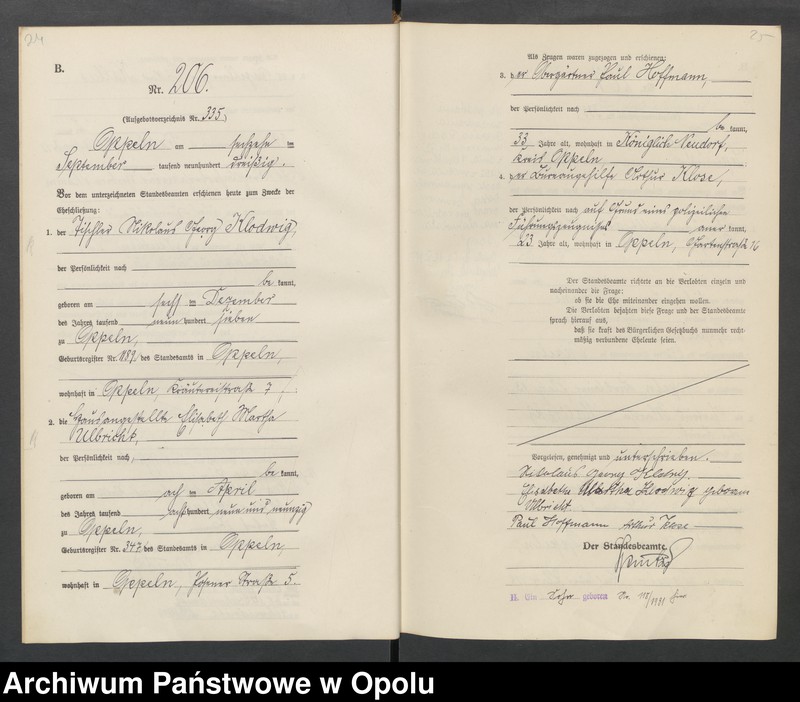 24
B.
Nr. 206.
(Aufgebotsverzeichnis Nr. 335)
Oppeln am sechzehn ten
September tausend neunhundert dreißig.
Vor dem unterzeichneten Standesbeamten erschienen heute zum Zwecke der
Eheschließung:
1. der Tischler Nikolaus Georg Klodwig,
der Persönlichkeit nach
be kannt,
geboren am sechs ten Dezember
des Jahres tausend neun hundert sieben
zu Oppeln,
Geburtsregister Nr. 1189 des Standesamts in Oppeln,
wohnhaft in Oppeln, Kräutereistraße 7,
2. die Hausangestellte Elisabeth Martha
Ulbricht,
der Persönlichkeit nach,
be kannt,
geboren am ach ten April
des Jahres tausend acht hundert neun und neunzig
zu Oppeln,
Geburtsregister Nr. 347 des Standesamts in Oppeln,
wohnhaft in Oppeln, Posener Straße 5.
25
Als Zeugen waren zugezogen und erschienen:
3. der Obergärtner Paul Hoffmann,
der Persönlichkeit nach
be kannt,
33 Jahre alt, wohnhaft in Königlich Neudorf,
Kreis Oppeln
4. der Bürogehilfe Arthur Klose,
der Persönlichkeit nach auf Grund eines polizeilichen
Führungszeugnisses aner kannt,
23 Jahre alt, wohnhaft in Oppeln, Gartenstraße 16
Der Standesbeamte richtete an die Verlobten einzeln und
nacheinander die Frage:
ob sie die Ehe miteinander eingehen wollen.
Die Verlobten bejahten diese Frage und der Standesbeamte
sprach hierauf aus,
daß sie kraft des Bürgerlichen Gesetzbuchs nunmehr recht-
mäßig verbundene Eheleute seien.
Vorgelesen, genehmigt und unterschrieben.
Nikolaus Georg Klodwig.
Elisabeth Martha Klodwig geborene
Ulbricht.
Paul Hoffmann Arthur Klose
Der Standesbeamte
II. Ein Sohn geboren No. 118/1931
Archiwum Państwowe w Opolu